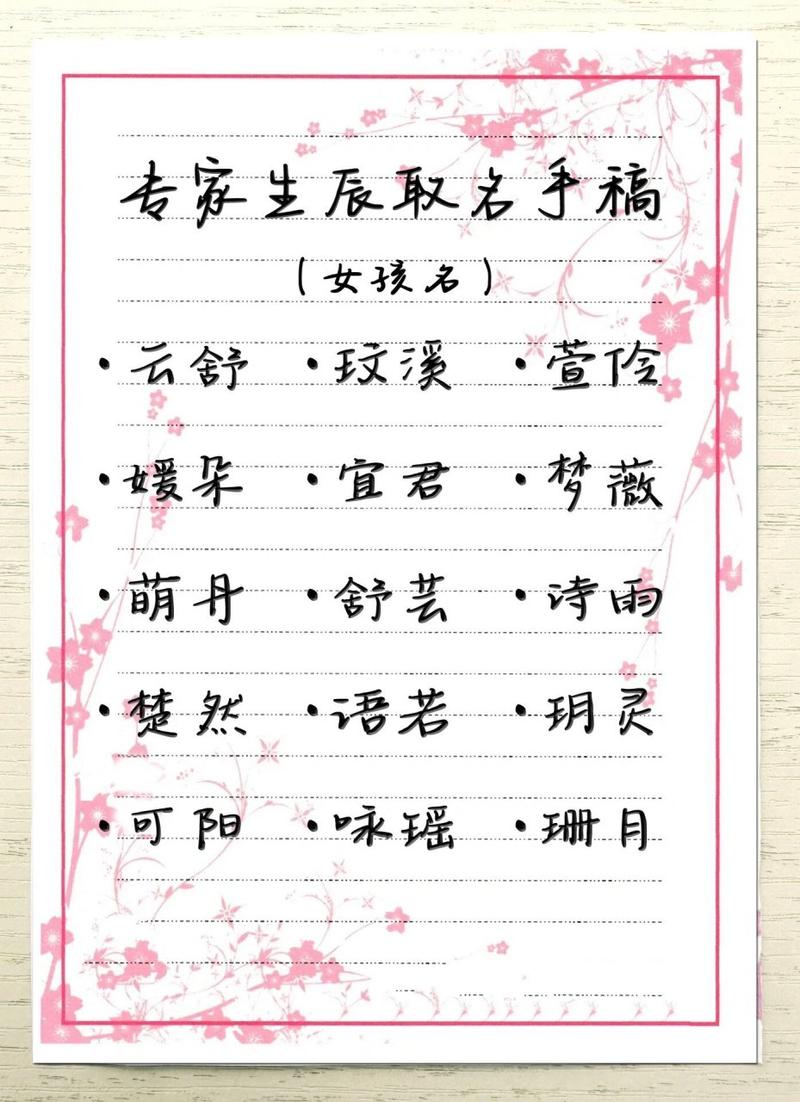 专家生辰取名手稿
(女孩名)
·云舒 ·玟溪 ·萱伶
·媛朵 ·宜君 ·梦薇
·萌丹 ·舒芸 ·诗雨
·楚然 ·语若 ·玥灵
·可阳 ·咏瑶 ·珊月